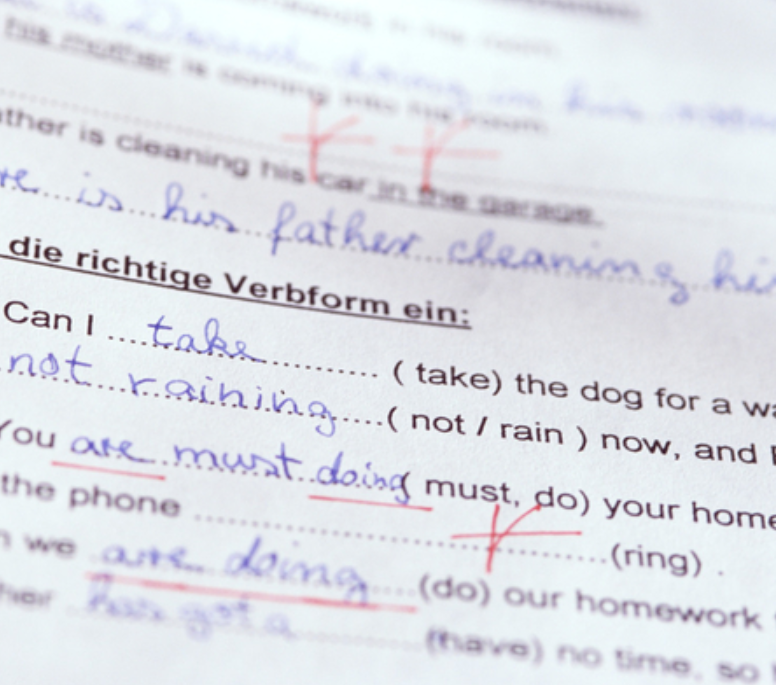 his mother is coming into his room.
ther is cleaning his car in the garage.
re is his father cleaning hi
die richtige Verbform ein:
Can I ... take ... ( take) the dog for a wa
not raining ....( not / rain ) now, and
You are must doing ( must, do) your home
the phone ... (ring) .
we are doing ... (do) our homework
her has got a ... (have) no time, so